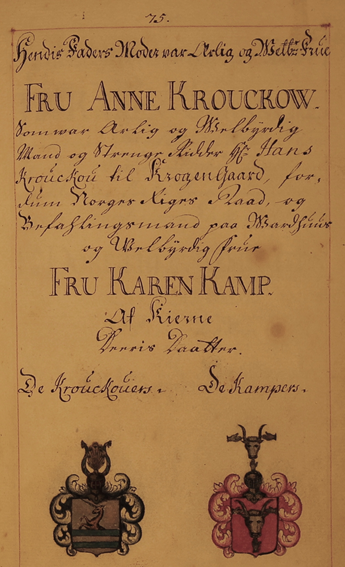 75.
Hendis Faders Moder war Ærlig og Welb: Frue
FRU ANNE KROUCKOW.
Som war Ærlig og Welbyrdig
Mand og Strenge Ridder Hr Hans
Krouckou til Krogen Gaard, for,
dum Norges Riges Raad, og
Befahlingsmand paa Wardhuus
og Welbyrdig Frue
FRU KAREN KAMP.
Af Kierne
Deeris Daatter.
De Krouckouers. De Kampers.